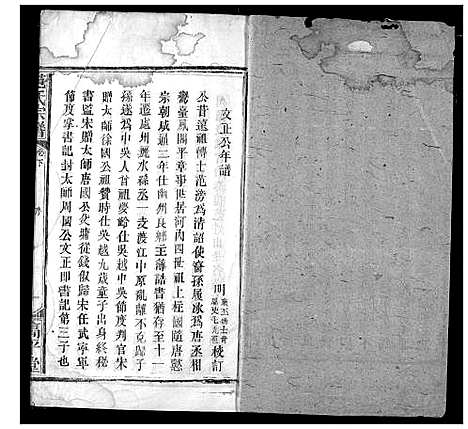 文正公年譜
明 校訂
公昔遠祖博士范滂爲清詔使裔孫履冰爲唐丞相
鸞臺鳳閣平章事世居河內四世祖上柱國隨唐懿
宗朝咸通二年任幽州良鄉主簿誥書猶存至十一
年遷處州麗水縣丞一支渡江中原亂離不克歸子
孫遂爲中吳人曾祖夢齡仕吳越中吳節度判官宋
贈太師徐國公祖贊時仕吳越九歲童子出身終秘
書監宋贈太師唐國公父墉從錢俶歸宋任武寧軍
節度掌書記封太師周國公文正即書記第三子也
范氏宗譜
卷下
高平堂